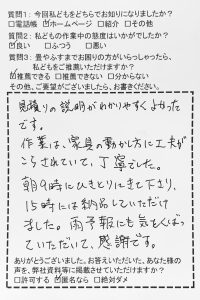 質問1:今回私どもをどちらでお知りになりましたか?
□電話帳 ☑ホームページ □紹介 □その他
質問2:私どもの作業中の態度はいかがでしたか?
☑良い □ふつう □悪い
質問3:畳やふすまでお困りの方がいらっしゃったら、
私どもをご推薦いただけますか?
☑推薦できる □推薦できない □分からない
その他、ご要望がございましたら、お書きください。
見積りの説明がわかりやすくよかった
です。
作業は、家具の動かし方に工夫が
こらされていて、丁寧でした。
朝9時にひきとりにきて下さり、
15時には納品していただけ
ました。雨予報にも気をくばっ
ていただいて、感謝です。
ありがとうございました。お答えいただいた、あなた様の
声を、弊社資料等に掲載させていただけますか?
□許可する ☑匿名なら □絶対ダメ